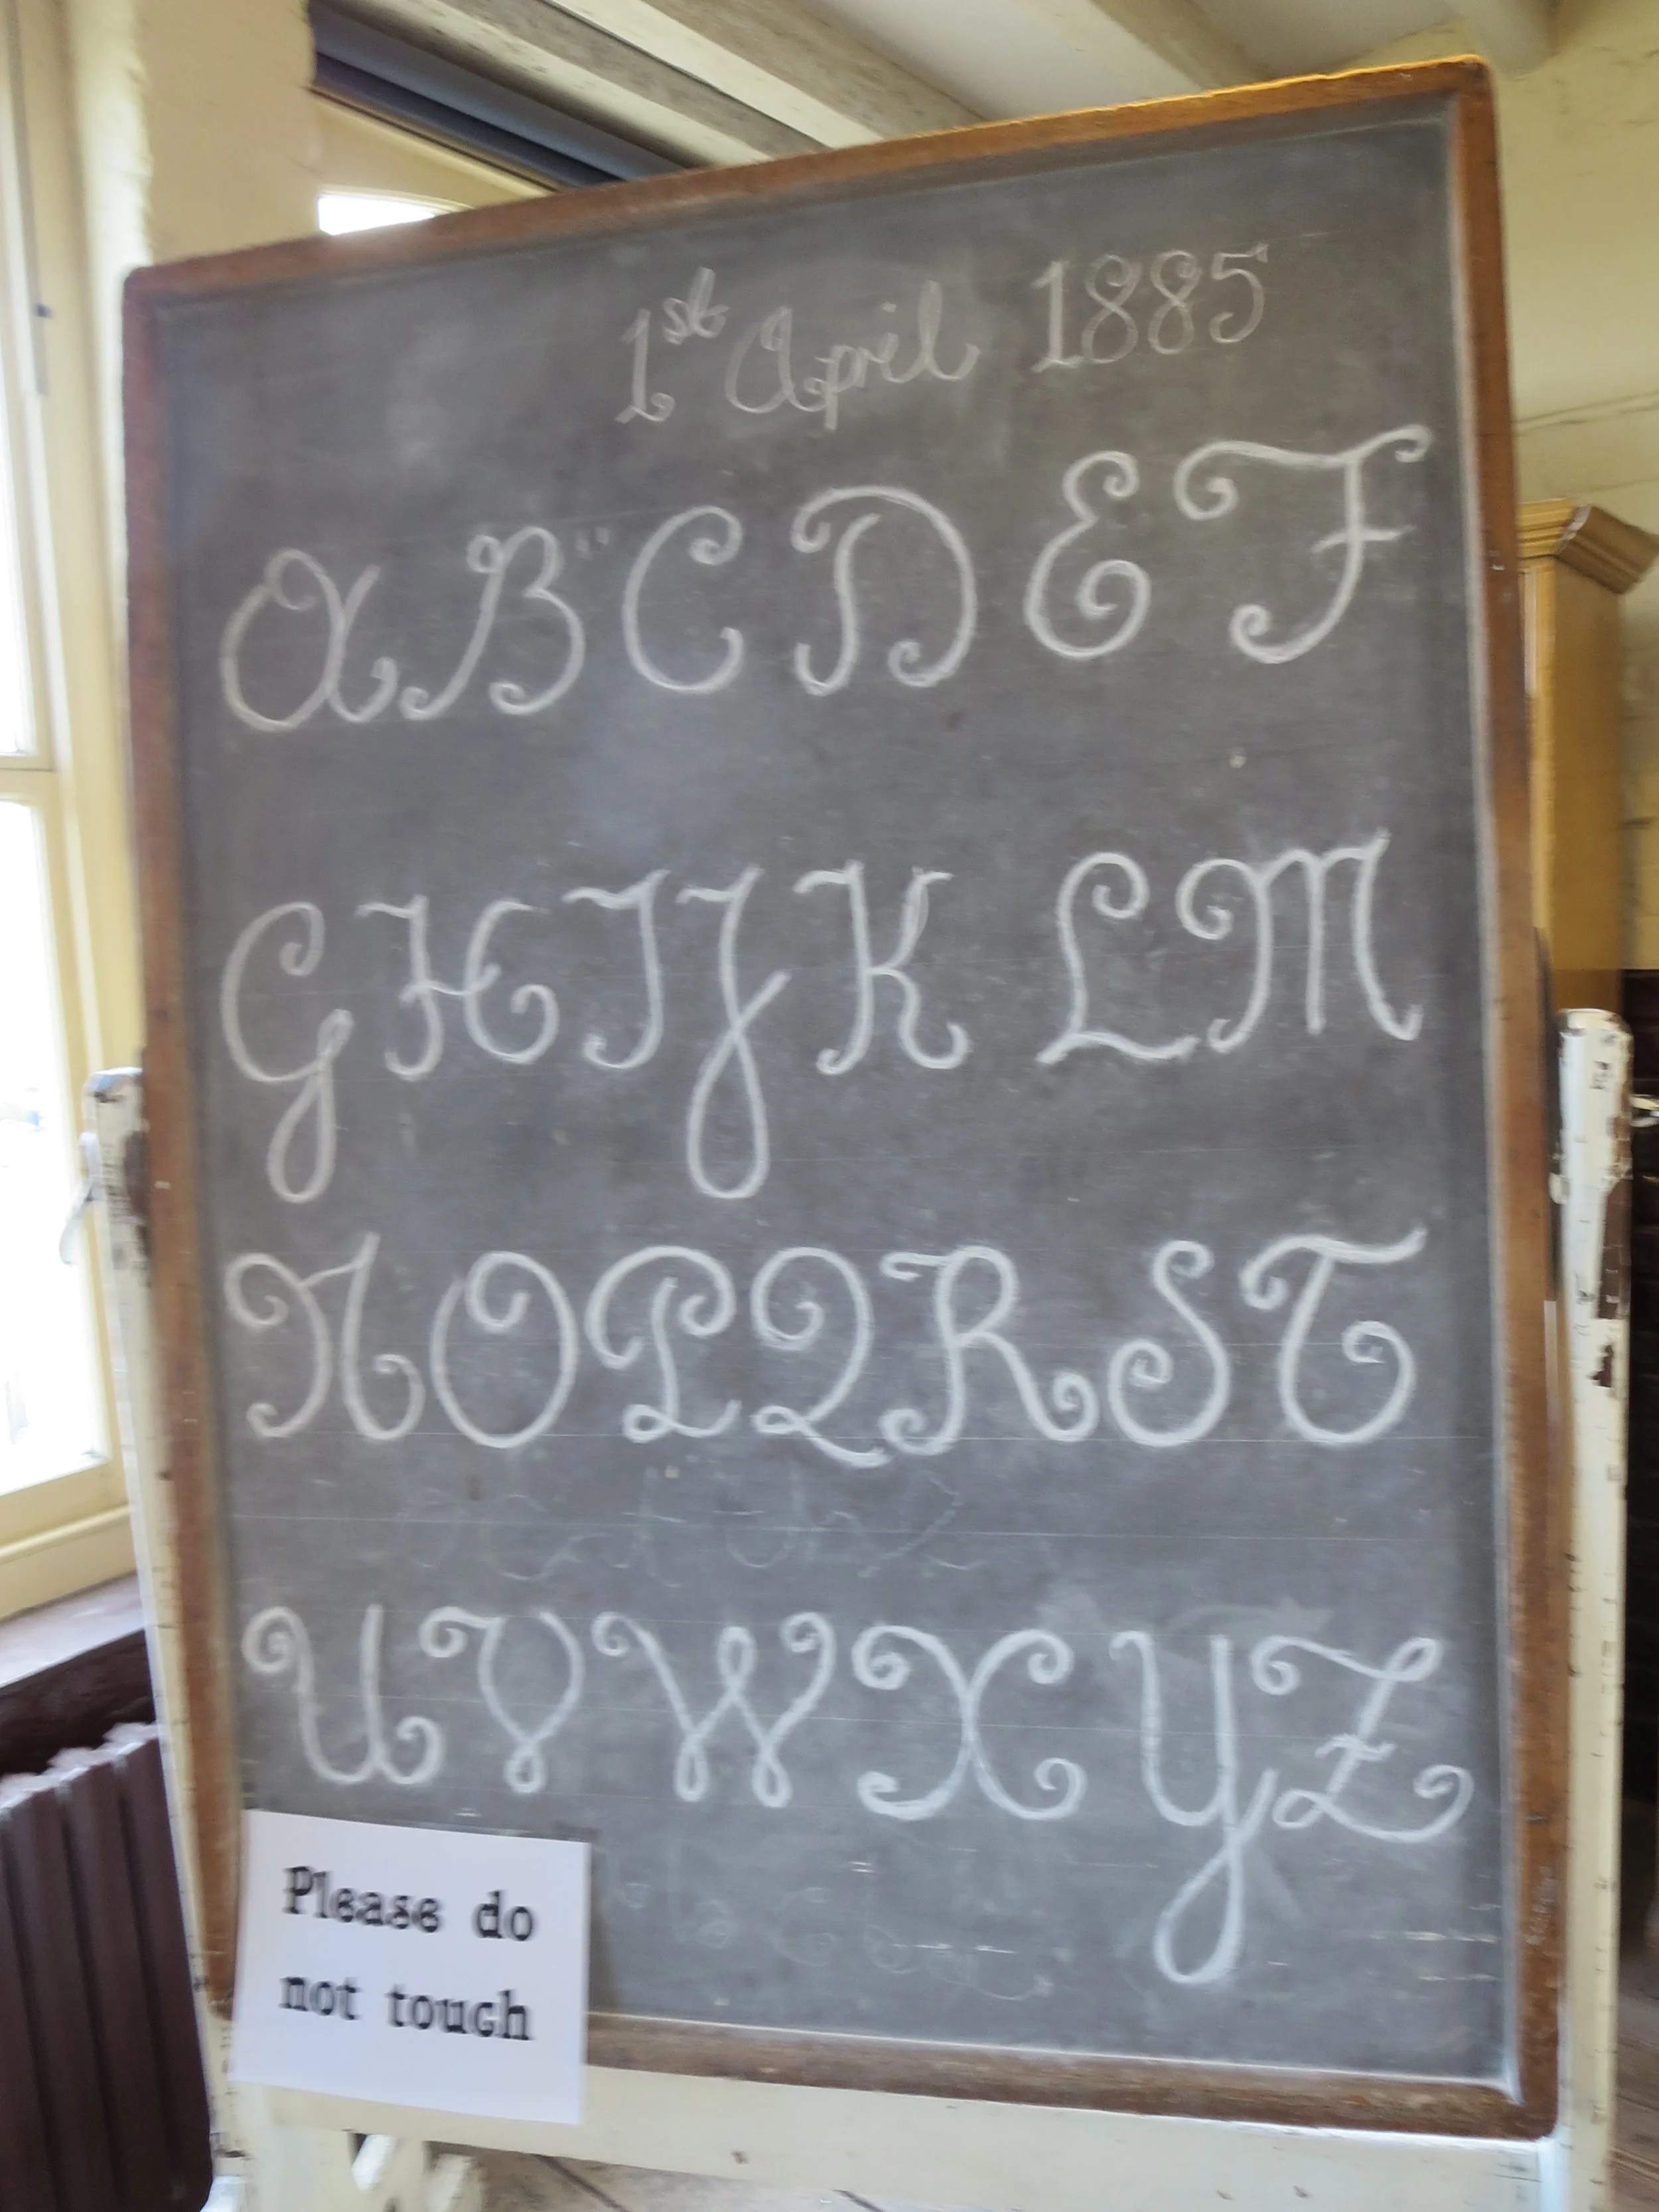 1st April 1885
A B C D E F
G H I J K L M
N O P Q R S T
U V W X Y Z
Please do
not touch